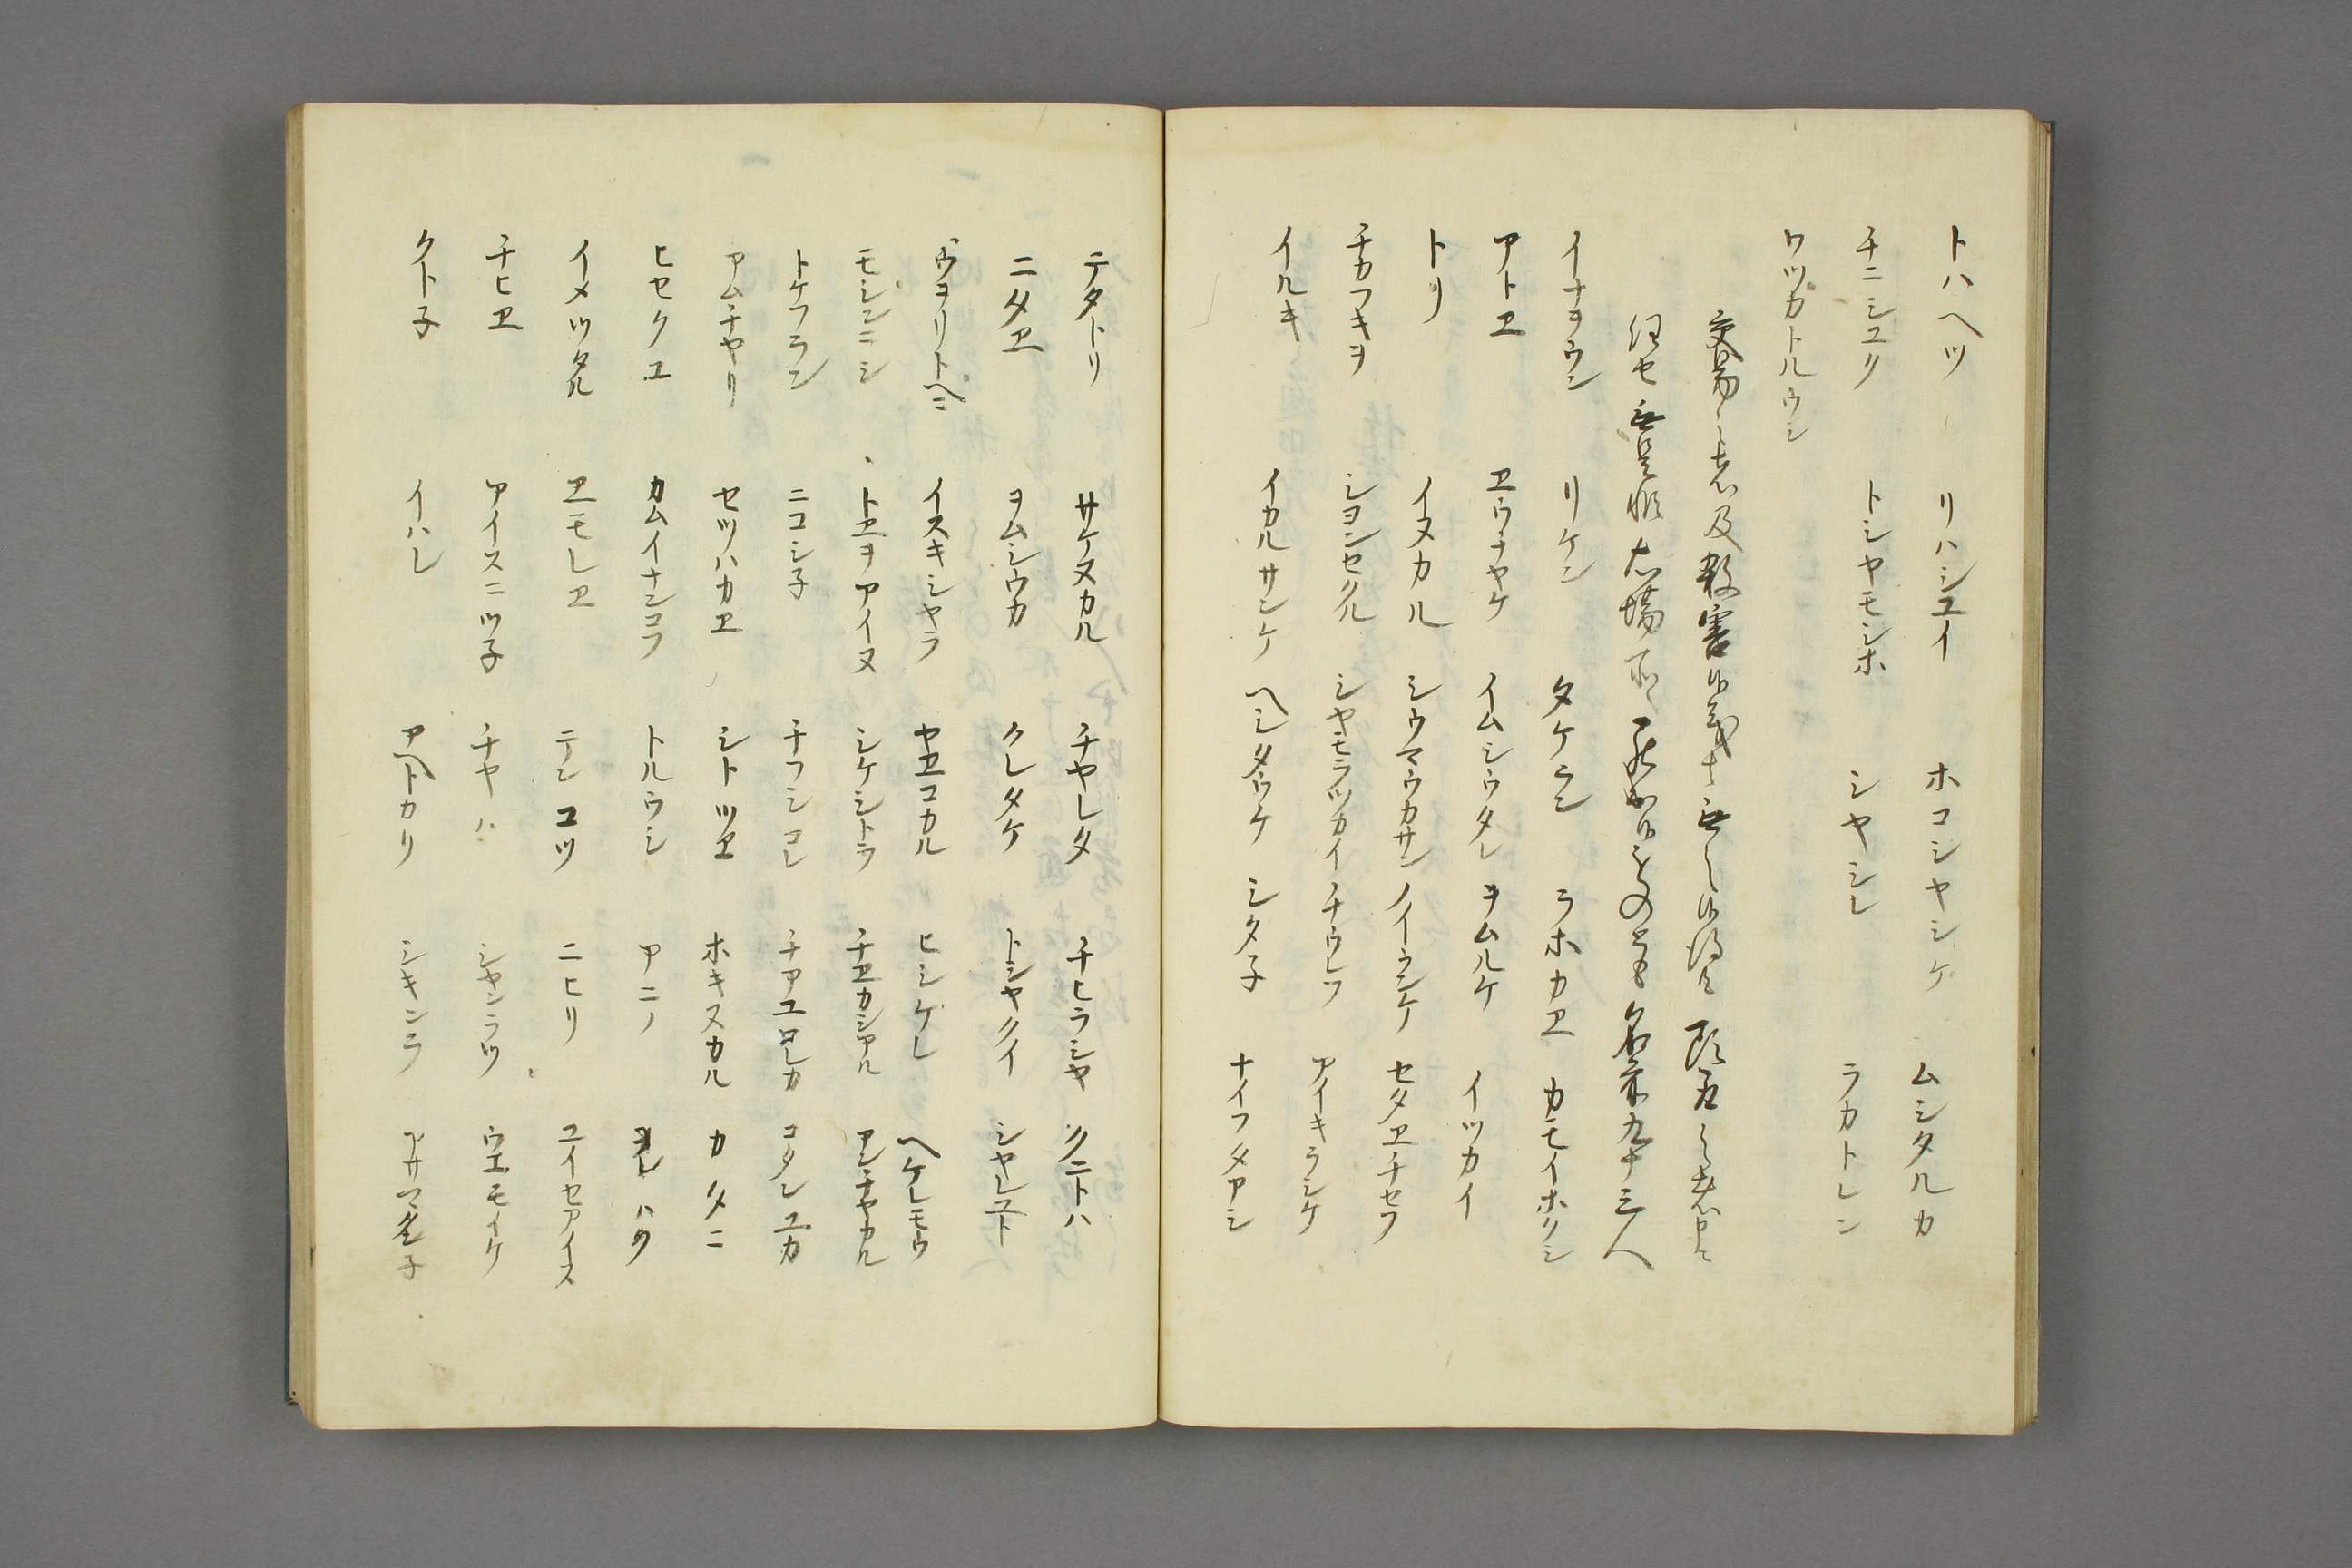 トハヘツ リハシユイ ホコシヤシケ ムシタルカ
チニシユク トシヤモンホ シヤシレ ラカトレン
ウツカトルウシ
交易之志及殺害候義も無之候得共 頭立之者申
任セ 無是非右場所へ罷出候ものとも 名前九十三人
イナヲウシ リケン タケラン ラホカヱ カモイホクシ
アトヱ ヱウチヤケ イムシウタレ ヲムルケ イツカイ
トリ イヌカル シウマウカサン ノイラシケ セタヱチセフ
チカフキヲ シヨンセクル シヤモラツカイ チウレフ アイキラシケ
イルキ イカルサンケ ヘシタウケ シタ子 ナイフタアシ
テタトリ サケヌカル チヤレタ チヒラシヤ クニトハ
ニタヱ ヲムシウカ クレタケ トシヤクイ シヤレユト
ウヲリトヘニ イスキシヤラ ヤヱコカル ヒシケレ ヘケレモウ
モシンニシ トヱヲアイヌ シケシトラ チヱカシアル アンチヤカル
トケフラン ニコシ子 チフシコレ チアユロレカ コタンユカ
アムチヤリ セツハカヱ シトツヱ ホキヌカル カタニ
ヒセクユ カムイナンコフ トルウシ アニノ ヲレハク
イメツタル ヱモレヱ テンコツ ニヒリ ユイセアイヌ
チヒヱ アイスニツ子 チヤハ シヤンラツ ウエモイケ
クト子 イハレ アヘトカリ シキンラ